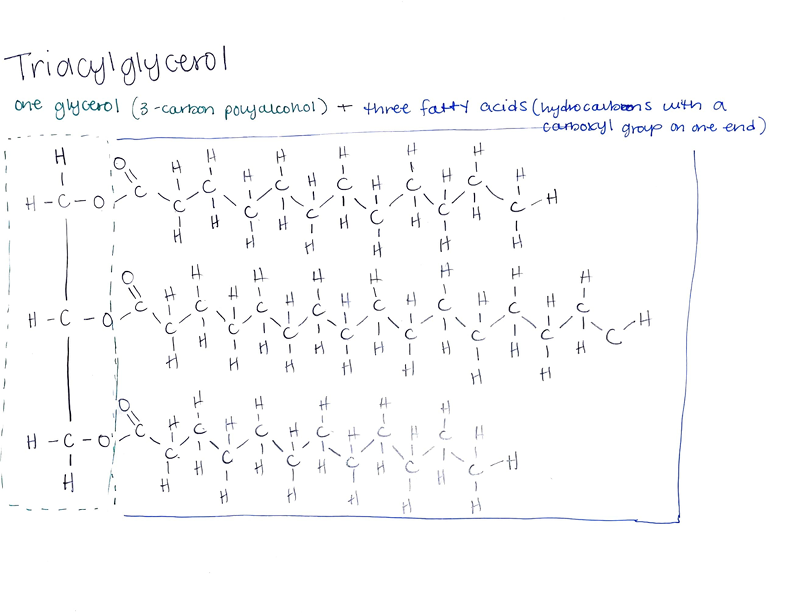 Triacylglycerol
one glycerol (3-carbon polyalcohol) + three fatty acids (hydrocarbons with a
carboxyl group on one end)
H H H H H H
O H H H H H H
H-C-O C C C C C C C C C C C C-H
H H H H H
H H H H H H
H H H H H H H
O H H H H H H H
H-C-O C C C C C C C C C C C C C C C C-H
H H H H H H H
H H H H H H H
H H H H H
O H H H H H H
H-C-O C C C C C C C C C C C C-H
H H H H H
H H H H H H H